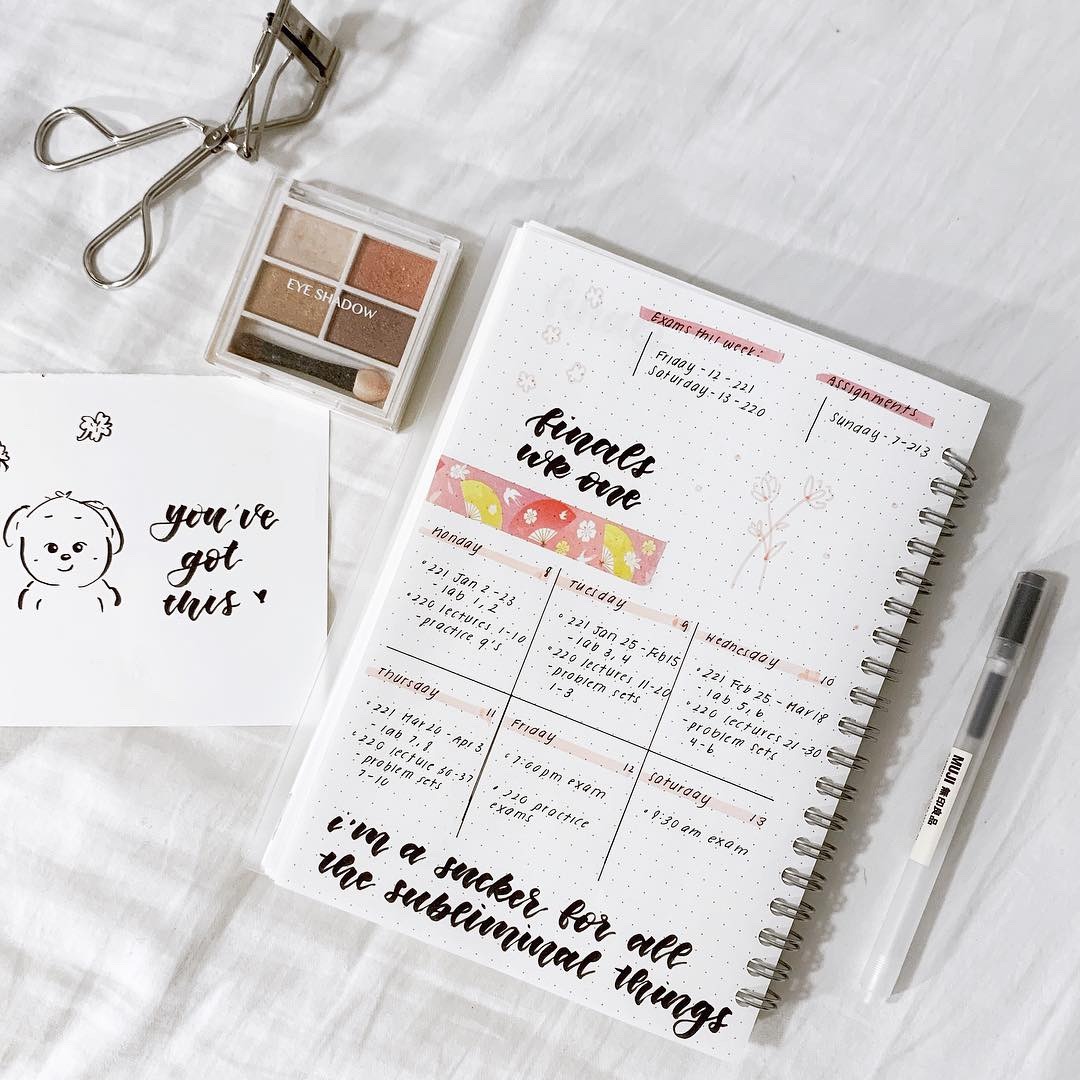 EYE SHADOW
you've
got
this
Exams this week:
Friday - 12 - 221
Saturday - 13 - 220
Assignments
Sunday - 7 - 213
finals
wk one
Monday 8
• 221 Jan 2 - 23
- lab 1, 2
• 220 lectures 1-10
- practice q's
Tuesday 9
• 221 Jan 25 - Feb 15
- lab 3, 4
• 220 lectures 11-20
- problem sets
1-3
Wednesday 10
• 221 Feb 25 - Mar 18
- lab 5, 6
• 220 lectures 21-30
- problem sets
4-6
Thursday 11
• 221 Mar 20 - Apr 3
- lab 7, 8
• 220 lecture 30-37
- problem sets
7-10
Friday 12
• 7:00pm exam
• 220 practice
exams
Saturday 13
• 8:30am exam
i'm a sucker for all
the subliminal things
MUJI 無印良品